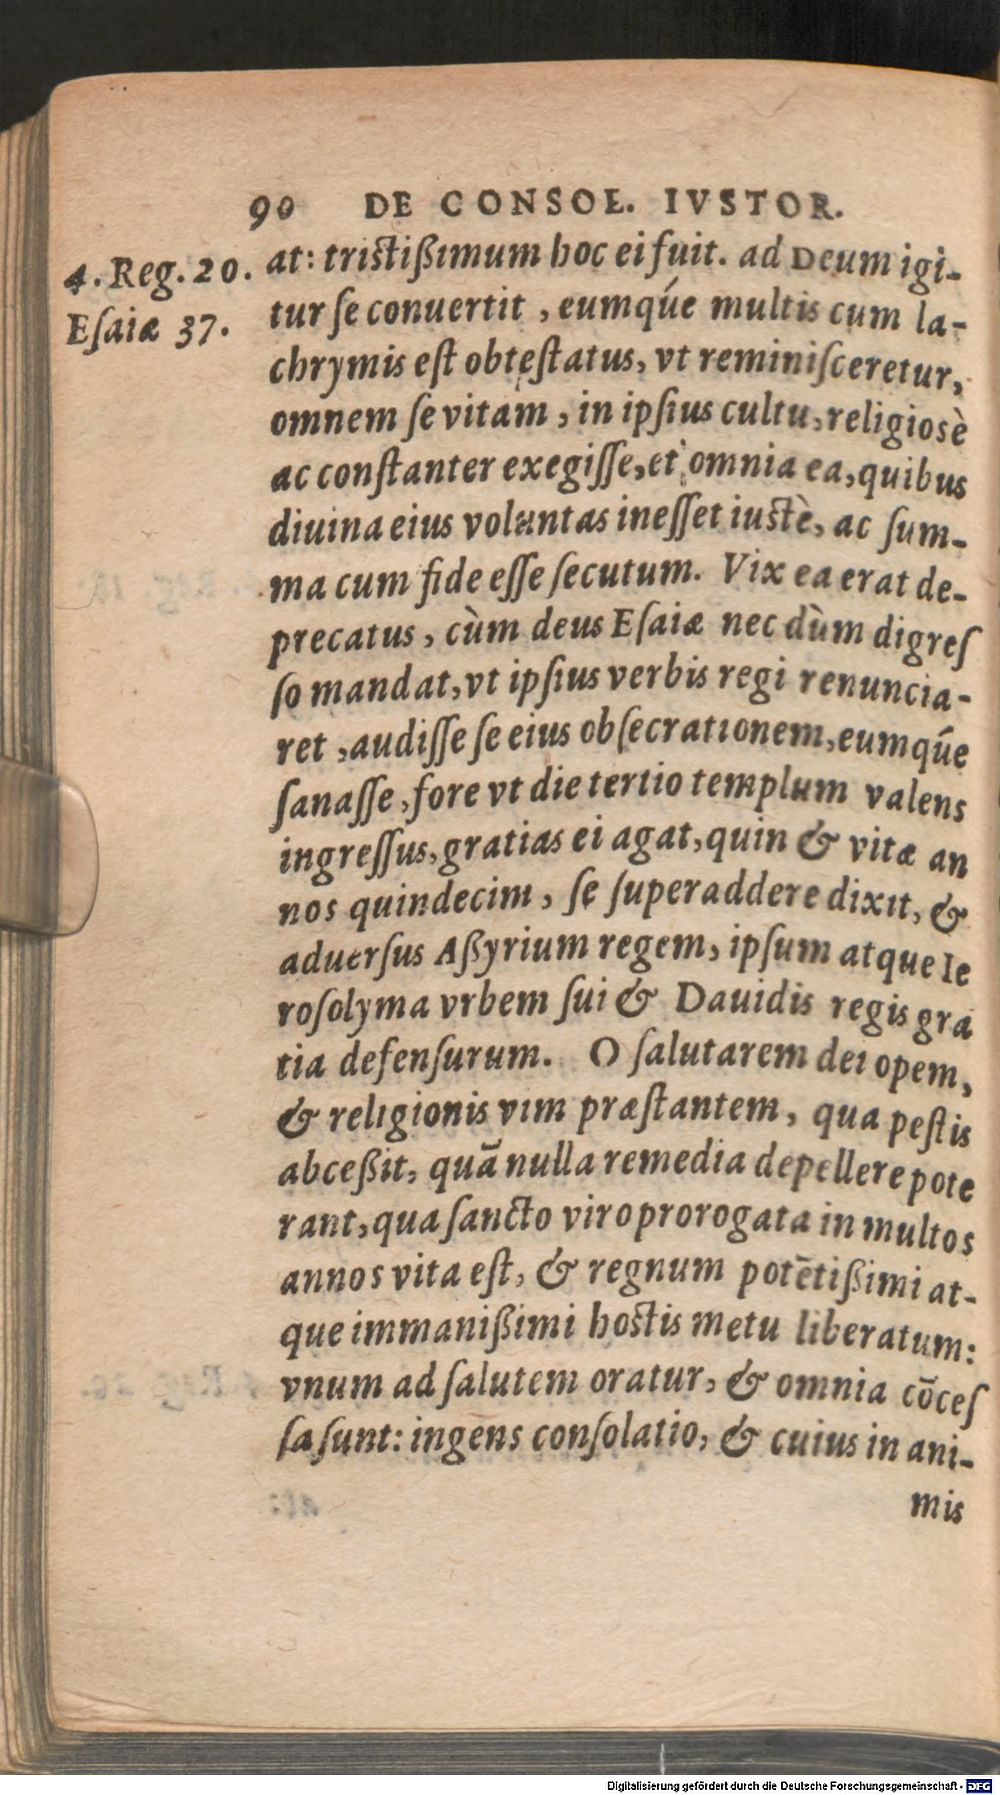 90 DE CONSOL. IVSTOR.
4. Reg. 20.
Esaiæ 37.
at: tristißimum hoc ei fuit. ad Deum igi-
tur se conuertit, eumqúe multis cum la-
chrymis est obtestatus, vt reminisceretur,
omnem se vitam, in ipsius cultu, religiosè
ac constanter exegisse, et omnia ea, quibus
diuina eius voluntas inesset iustè, ac sum-
ma cum fide esse secutum. Vix ea erat de-
precatus, cùm deus Esaiæ nec dùm digres
so mandat, vt ipsius verbis regi renuncia-
ret, audisse se eius obsecrationem, eumqúe
sanasse, fore vt die tertio templum valens
ingressus, gratias ei agat, quin & vitæ an
nos quindecim, se superaddere dixit, &
aduersus Aßyrium regem, ipsum atque Ie
rosolyma vrbem sui & Dauidis regis gra
tia defensurum. O salutarem dei opem,
& religionis vim præstantem, qua pestis
abceßit, quã nulla remedia depellere pote
rant, qua sancto viro prorogata in multos
annos vita est, & regnum potẽtißimi at-
que immanißimi hostis metu liberatum:
vnum ad salutem oratur, & omnia cõces
sa sunt: ingens consolatio, & cuius in ani-
mis
Digitalisierung gefördert durch die Deutsche Forschungsgemeinschaft - DFG